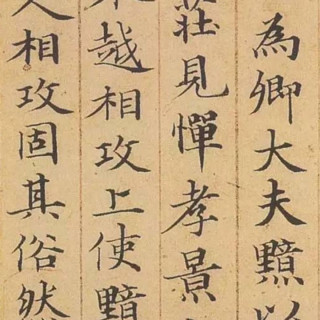 為卿大夫黯以
莊見憚孝景
越相攻上使黯
人相攻固其俗然